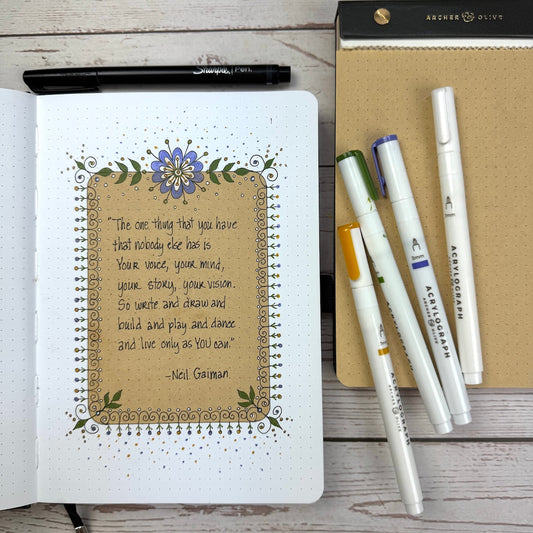 ARCHER OLIVE
Sharpie Pen.
"The one thing that you have
that nobody else has is
Your voice, your mind,
your story, your vision.
So write and draw and
build and play and dance
and live only as YOU can."
-Neil Gaiman
1mm
ACRYLOGRAPH
3mm
ACRYLOGRAPH
ACRYLOGRAPH
ACRYLOGRAPH